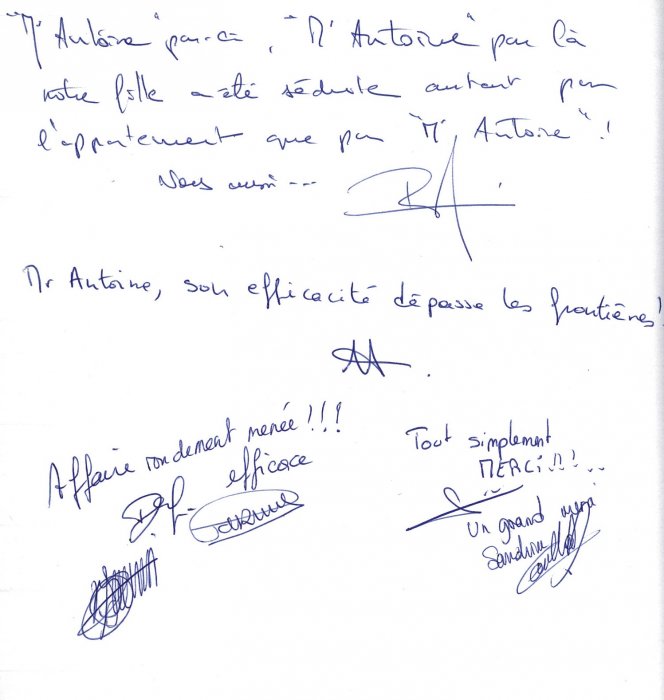 "Mr Antoine" par-ci, "Mr Antoine" par là
notre fille a été séduite autant par
l'appartement que par "Mr Antoine"!
Nous aussi---
Mr Antoine, son efficacité dépasse les frontières!
Affaire rondement menée!!!
efficace
Tout simplement
MERCi!!!...
Un grand merci
Sandrine